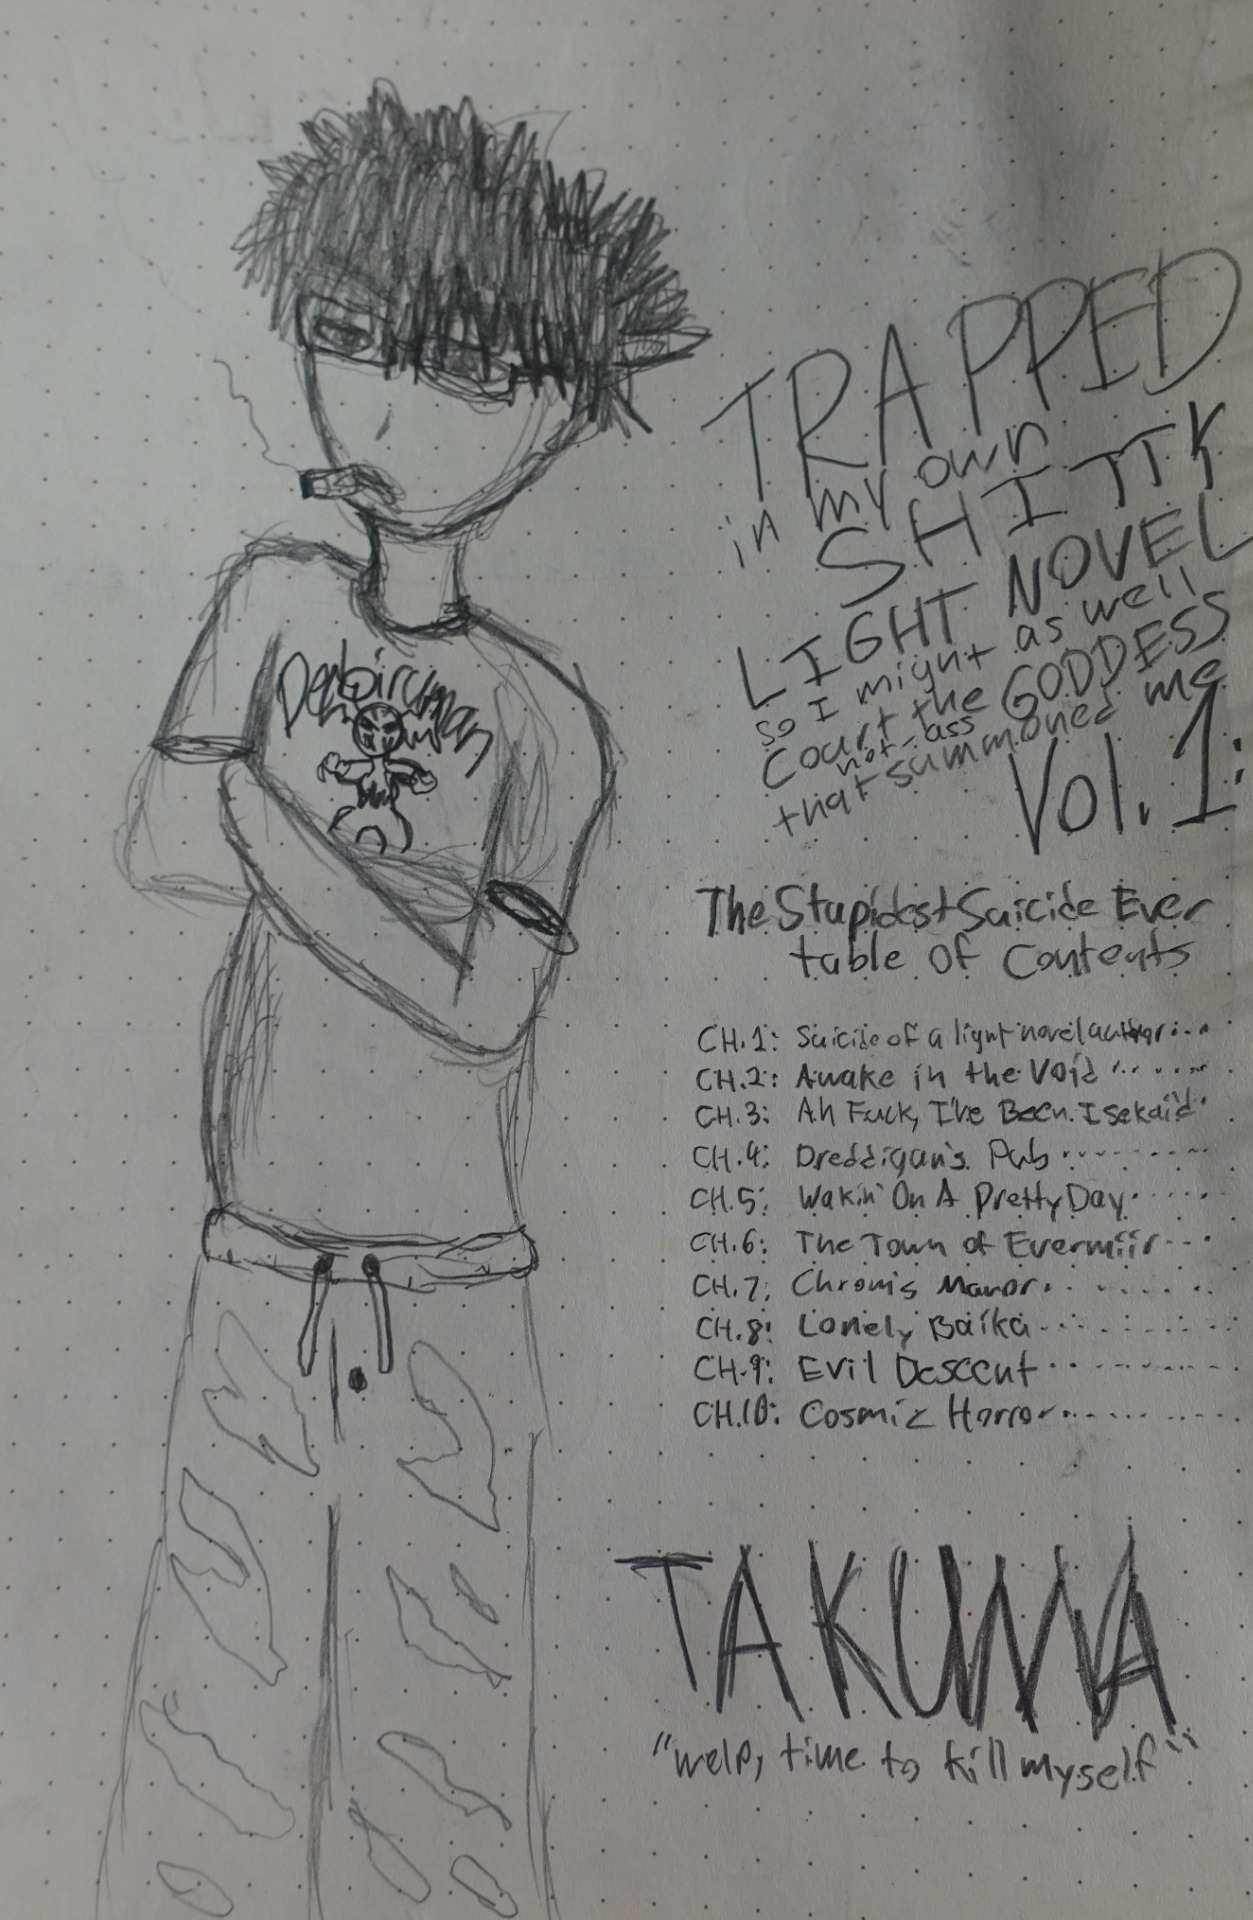 TRAPPED
in my own
SHITTY
LIGHT NOVEL
so I might as well
Court the GODDESS
hot-ass
that summoned me
Vol. 1:
The Stupidest Suicide Ever
table of Contents
CH.1: Suicide of a light novel author
CH.2: Awake in the Void
CH.3: Ah Fuck, I've Been Isekai'd
CH.4: Dreddigan's Pub
CH.5: Wakin' On A Pretty Day
CH.6: The Town of Evermiir
CH.7: Chrom's Manor
CH.8: Lonely Baika
CH.9: Evil Descent
CH.10: Cosmic Horror
TAKUMA
"welp, time to kill myself"